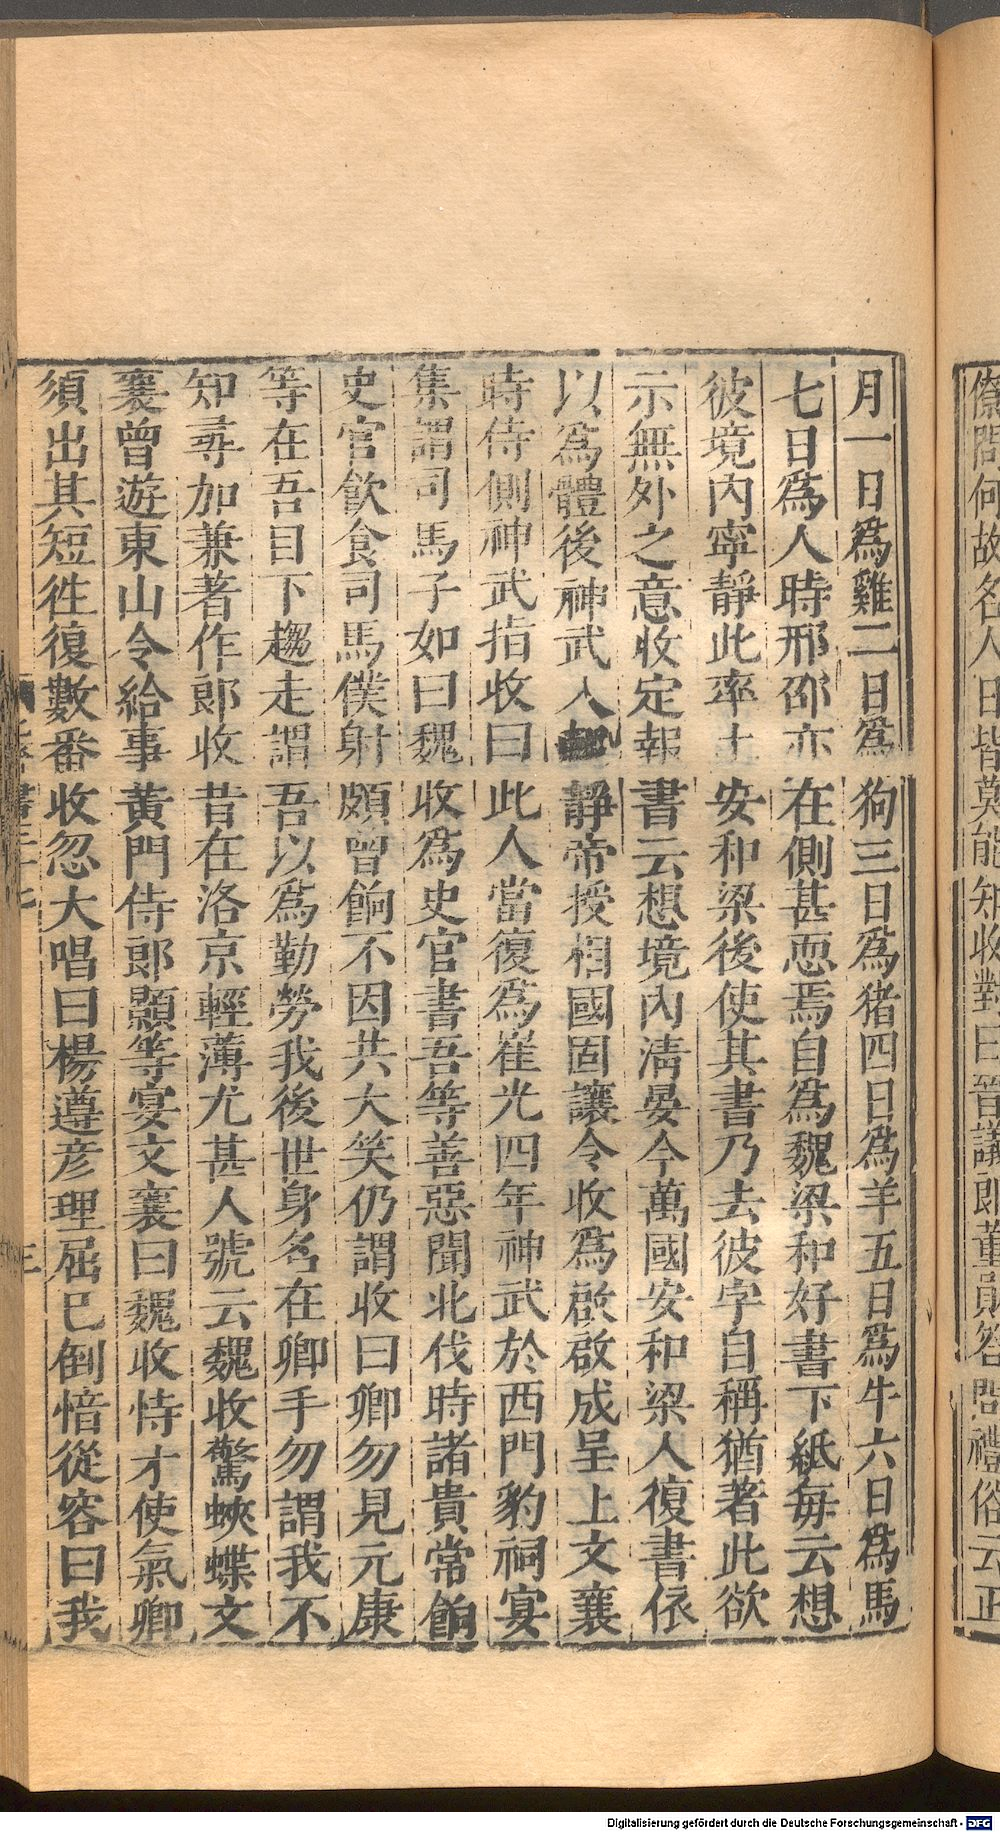 僚問何故名人日皆莫能知收對曰晉議郎董勛答問禮俗云正
月一日爲雞二日爲狗三日爲猪四日爲羊五日爲牛六日爲馬
七日爲人時邢邵亦在側甚恧焉自爲魏梁和好書下紙每云想
彼境內寧靜此率土安和梁後使其書乃去彼字自稱猶著此欲
示無外之意收定報書云想境內淸晏今萬國安和梁人復書依
以爲體後神武入朝靜帝授相國固讓令收爲啟啟成呈上文襄
時侍側神武指收曰此人當復爲崔光四年神武於西門豹祠宴
集謂司馬子如曰魏收爲史官書吾等善惡聞北伐時諸貴常餉
史官飲食司馬僕射頗曾餉不因共大笑仍謂收曰卿勿見元康
等在吾目下趨走謂吾以爲勤勞我後世身名在卿手勿謂我不
知尋加兼著作郎收昔在洛京輕薄尤甚人號云魏收驚蛺蝶文
襄曾遊東山令給事黃門侍郎顥等宴文襄曰魏收恃才使氣卿
須出其短徃復數番收忽大唱曰楊遵彦理屈已倒愔從容曰我
三
Digitalisierung gefördert durch die Deutsche Forschungsgemeinschaft - DFG